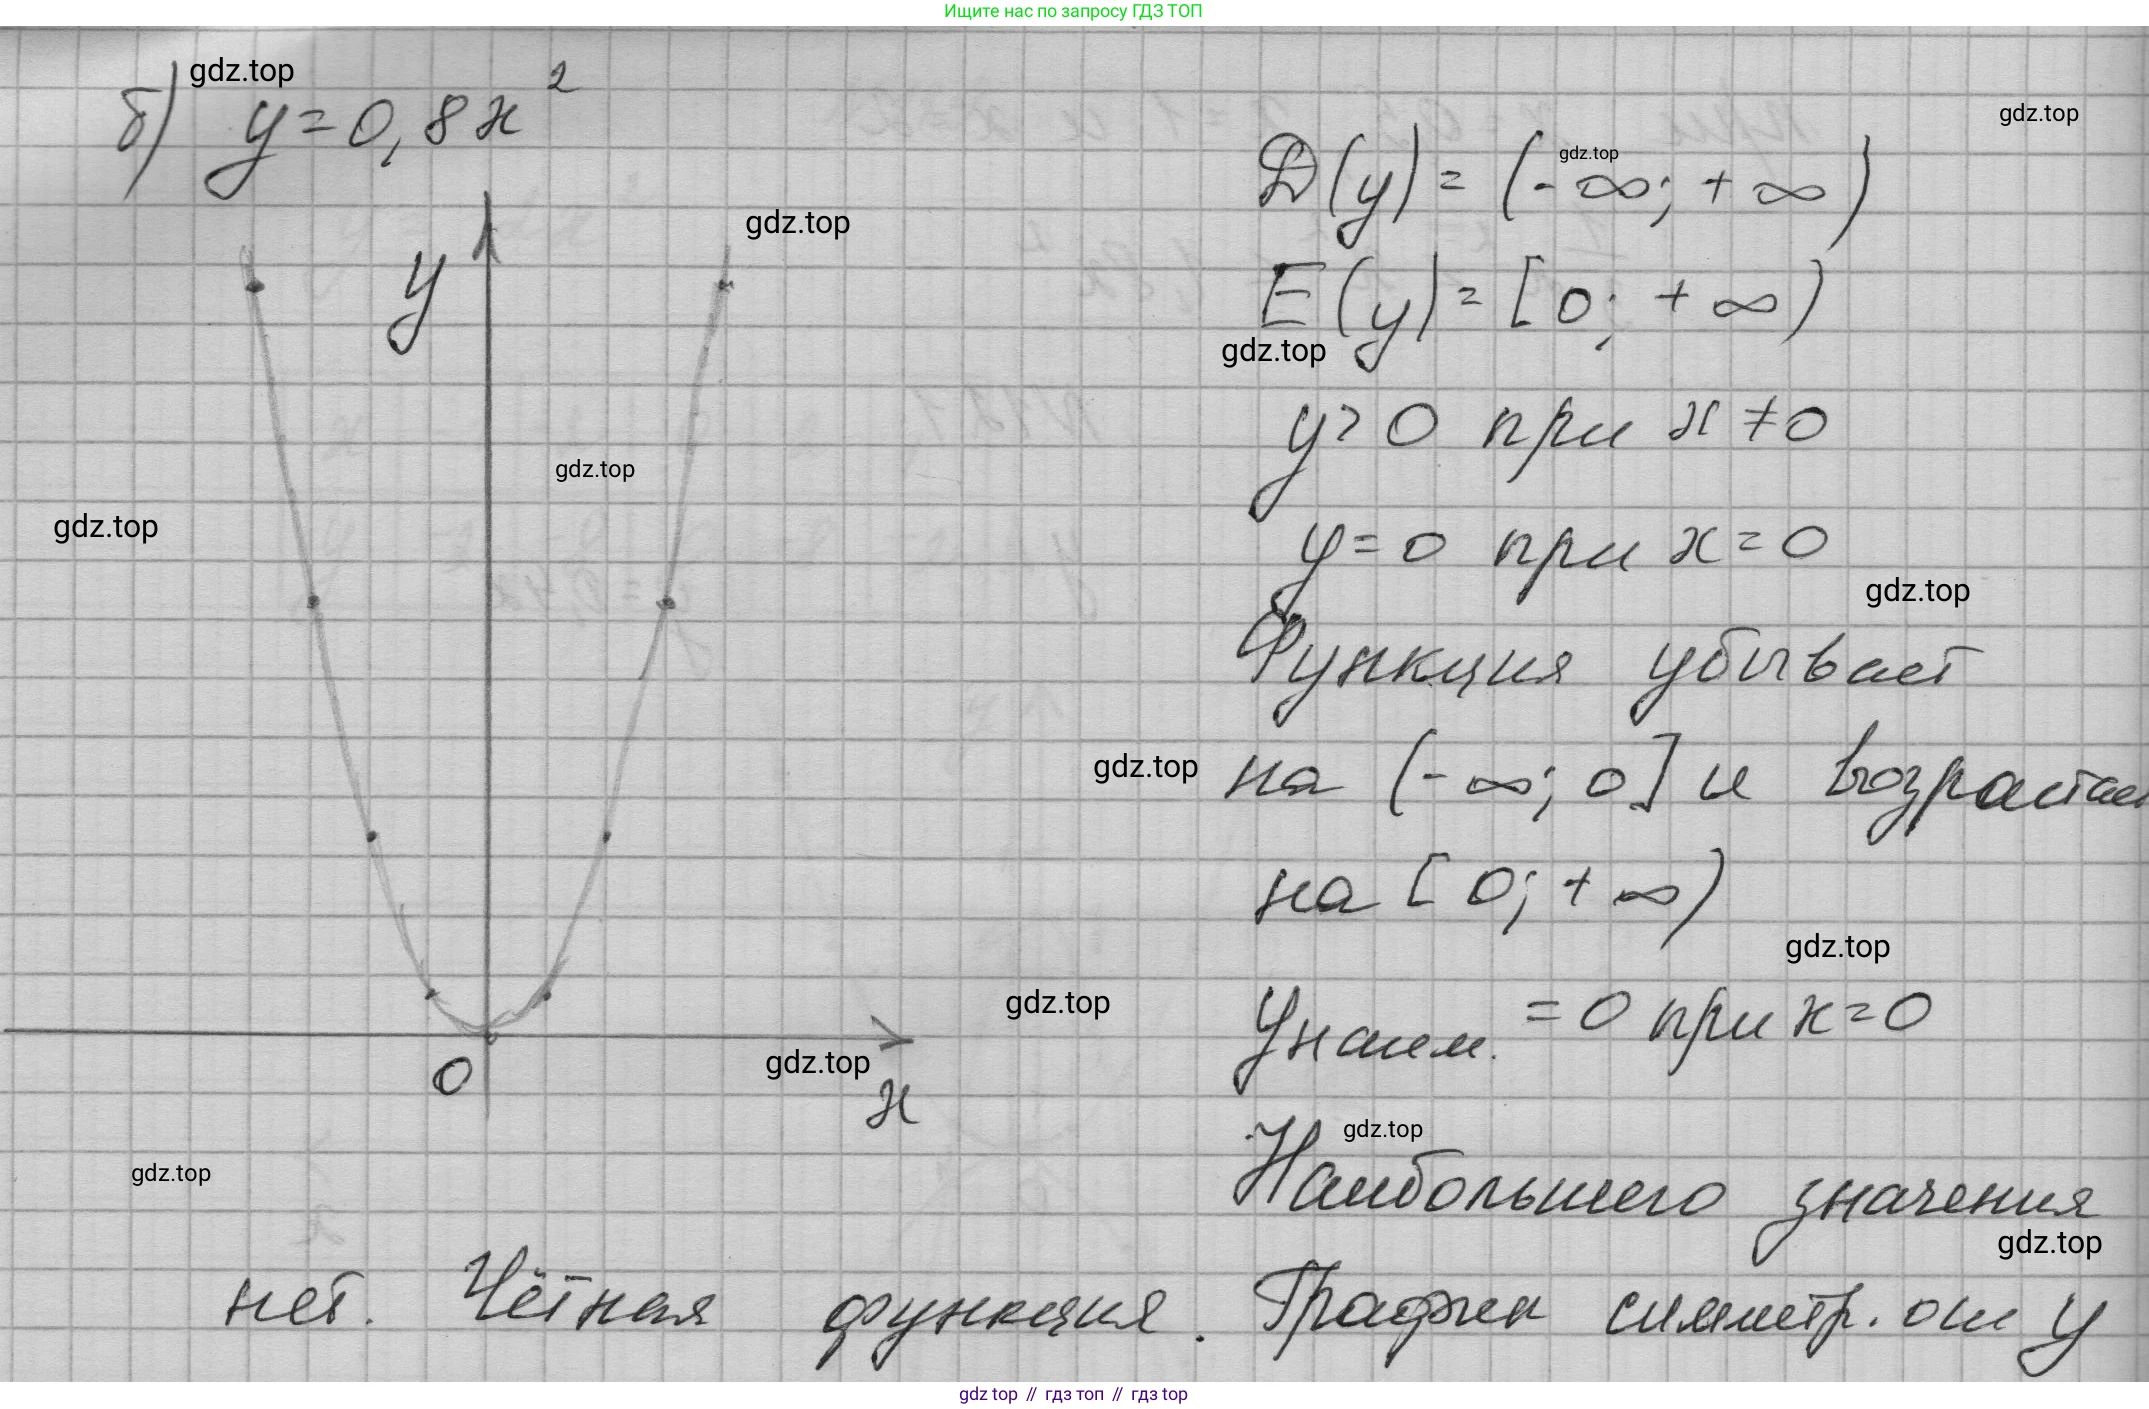 Ищите нас по запросу ГДЗ ТОП
gdz.top
б) y = 0,8x²
gdz.top
D(y) = (-∞; +∞)
gdz.top
gdz.top
y
E(y) = [0; +∞)
gdz.top
y > 0 при x ≠ 0
gdz.top
gdz.top
y = 0 при x = 0
gdz.top
Функция убывает
на (-∞; 0] и возрастает
gdz.top
на [0; +∞)
gdz.top
gdz.top
yнаим. = 0 при x = 0
0
gdz.top
x
gdz.top
gdz.top
Наибольшего значения
gdz.top
нет. Чётная функция. График симметр. оси y
gdz top // гдз топ // гдз top